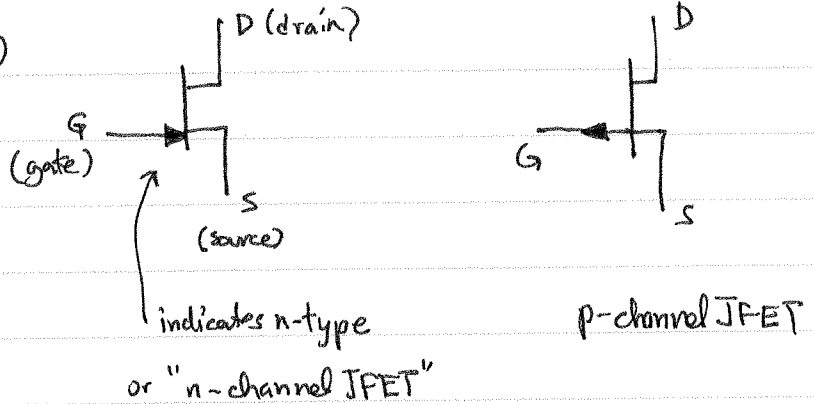 )
D (drain)
G
(gate)
S
(source)
indicates n-type
or "n-channel JFET"
D
G
S
p-channel JFET